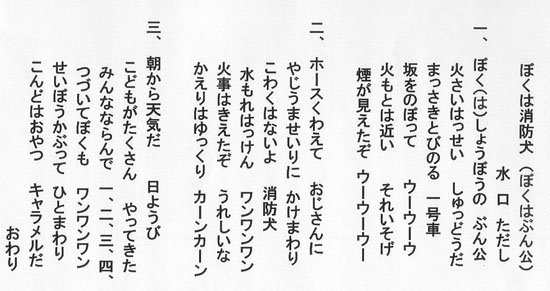 ぼくは消防犬 (ぼくはぶん公)
水口 ただし
一、ぼく(は)しょうぼうの ぶん公
火さいはっせい しゅつどうだ
まっさきとびのる 一号車
坂をのぼって ウーウーウ
火もとは近い それいそげ
煙が見えたぞ ウーウーウー
二、ホースくわえて おじさんに
やじうませいりに かけまわり
こわくはないよ 消防犬
水もれはっけん ワンワンワン
火事はきえたぞ うれしいな
かえりはゆっくり カーンカーン
三、朝から天気だ 日ようび
こどもがたくさん やってきた
みんなならんで 一、二、三、四、
つづいてぼくも ワンワンワン
せいぼうかぶって ひとまわり
こんどはおやつ キャラメルだ
おわり